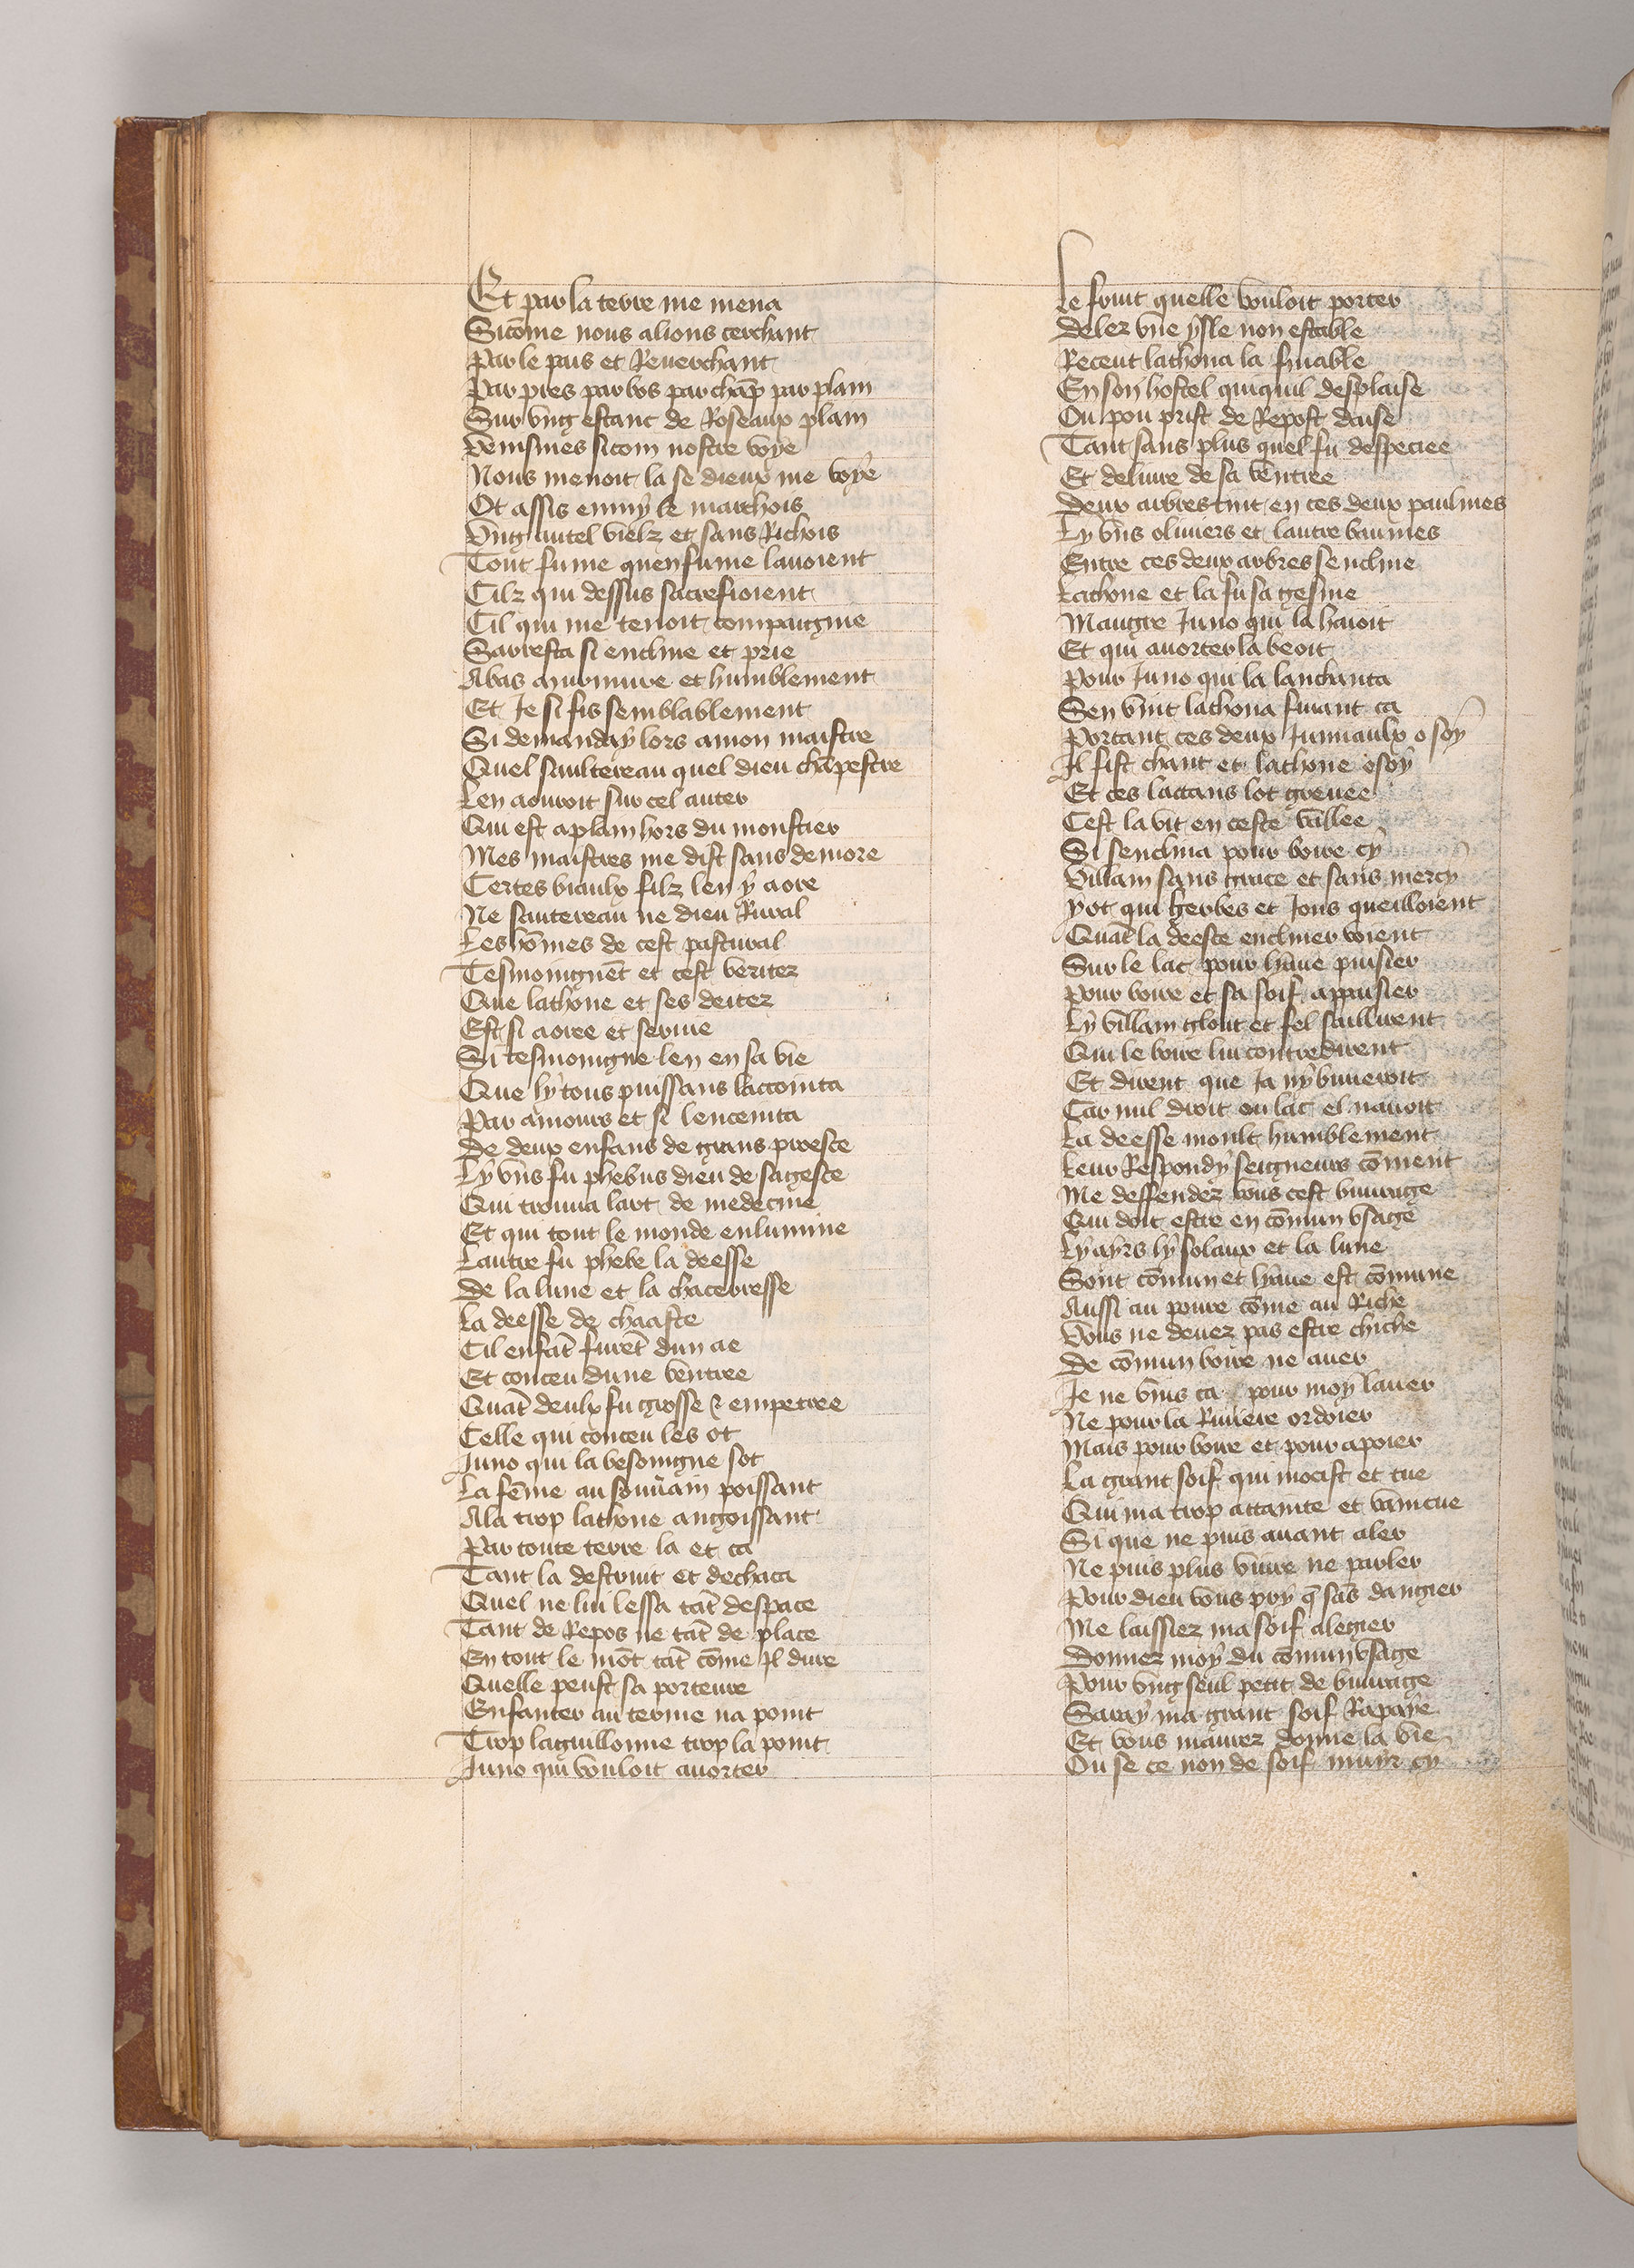 Et par la terre me mena
Sicōme nous alions cerchant
Par le pais et Reuerchant
Par pres par bos par chāp par plain
Sur vng estanc de Roseaux plain
Venismes sicom nostre voye
Nous menoit la se dieux me voye
Ot assis enmy le marchois
Vng autel vielz et sans Richois
Tout fume quenfume lauoient
Cilz qui dessus sacrefioient
Cil qui me tenoit compaignie
Sarresta si encline et prie
Abas murmure et humblement
Et Je si fis semblablement
Si demanday lors amon maistre
Quel saultereau quel dieu chāpestre
Len aouroit sur cel auter
Qui est aplain hors du monstier
Mes maistres me dist sans demore
Certes biaulx filz len y aore
Ne sautereau ne dieu Rural
Les hōmes de cest pastural
Tesmoingnēt et cest veritez
Que lathone et ses deitez
Est si aoree et seruie
Si tesmoingne len en sa vie
Que ly tous puissans laccointa
Par amours et si lencenita
De deux enfans de grans proesce
Ly vns fu phebus dieu de sagesce
Qui trouua lart de medecine
Et qui tout le monde enlumine
Lautre fu phebe la deesse
De la lune et la chacerresse
La deesse de chaaste
Cil enfāt furēt dun ae
Et conceu dune ventree
Quāt deulx fu grosse & empetree
Celle qui conceu les ot
Juno qui la besoingne sot
La fēme au souuāin poissant
Ala trop lathone angoissant
Par toute terre la et ca
Tant la destruit et dechaca
Quel ne lui lessa tāt despace
Tant de Repos ne tāt de place
En tout le mōt tāt cōme Jl dure
Quelle peust sa porteure
Enfanter au terme na point
Trop laguillonne trop la point
Juno qui vouloit auorter
Le fruit quelle vouloit porter
Delez vne ysle non estable
Receut lathona la finable
En son hostel quiquil desplaise
Ou pou prist de Repost daise
Tant sans plus quel fu despeciee
Et deliure de sa ventree
Deux arbres tint en ces deux paulmes
Ly vns oliuiers et lautre baumes
Entre ces deux arbres sencline
Lathone et la fu sa gesine
Maugre Juno qui la haioit
Et qui auorter la beoit
Pour Juno qui la lanchanta
Sen vint lathona fuiant ca
Portant ces deux Jumaulx o soy
Jl fist chaut et lathone osoy
Et ces lactans lot greuee
Cest la vit en ceste vallee
Si senclina pour boire cy
Villain sans grace et sans mercy
Y ot qui herbes et Jons queulloient
Quāt la deesce encliner voient
Sur le lac pour liaue puisier
Pour boire et sa soif appaisier
Ly villain glout et fel saillirent
Qui le boire lui contredirent
Et dirent que Ja ny buueroit
Car nul droit ou lac el nauoit
La deesse moult humblement
Leur Respondy seigneurs cōment
Me deffendez vous cest buurage
Qui doit estre en cōmun vsage
Ly ayrs ly solaux et la lune
Sont cōmun et liaue est cōmune
Aussi au poure cōme au Riche
Vous ne deuez pas estre chiche
De cōmun boire ne auer
Je ne vins ca pour moy lauer
Ne pour la Riuiere ordoier
Mais pour boire et pour apoier
La grant soif qui mocist et tue
Qui ma trop attainte et vaincue
Si que ne puis auant aler
Ne puis plus viure ne parler
Pour dieu vous pry q̄ sās dangier
Me laissiez ma soif alegier
Donnez moy du cōmun vsage
Pour vng seul petit de buurage
Saray ma grant soif Rapaye
Et vous maurez donne la vie
Ou se ce non de soif muir cy